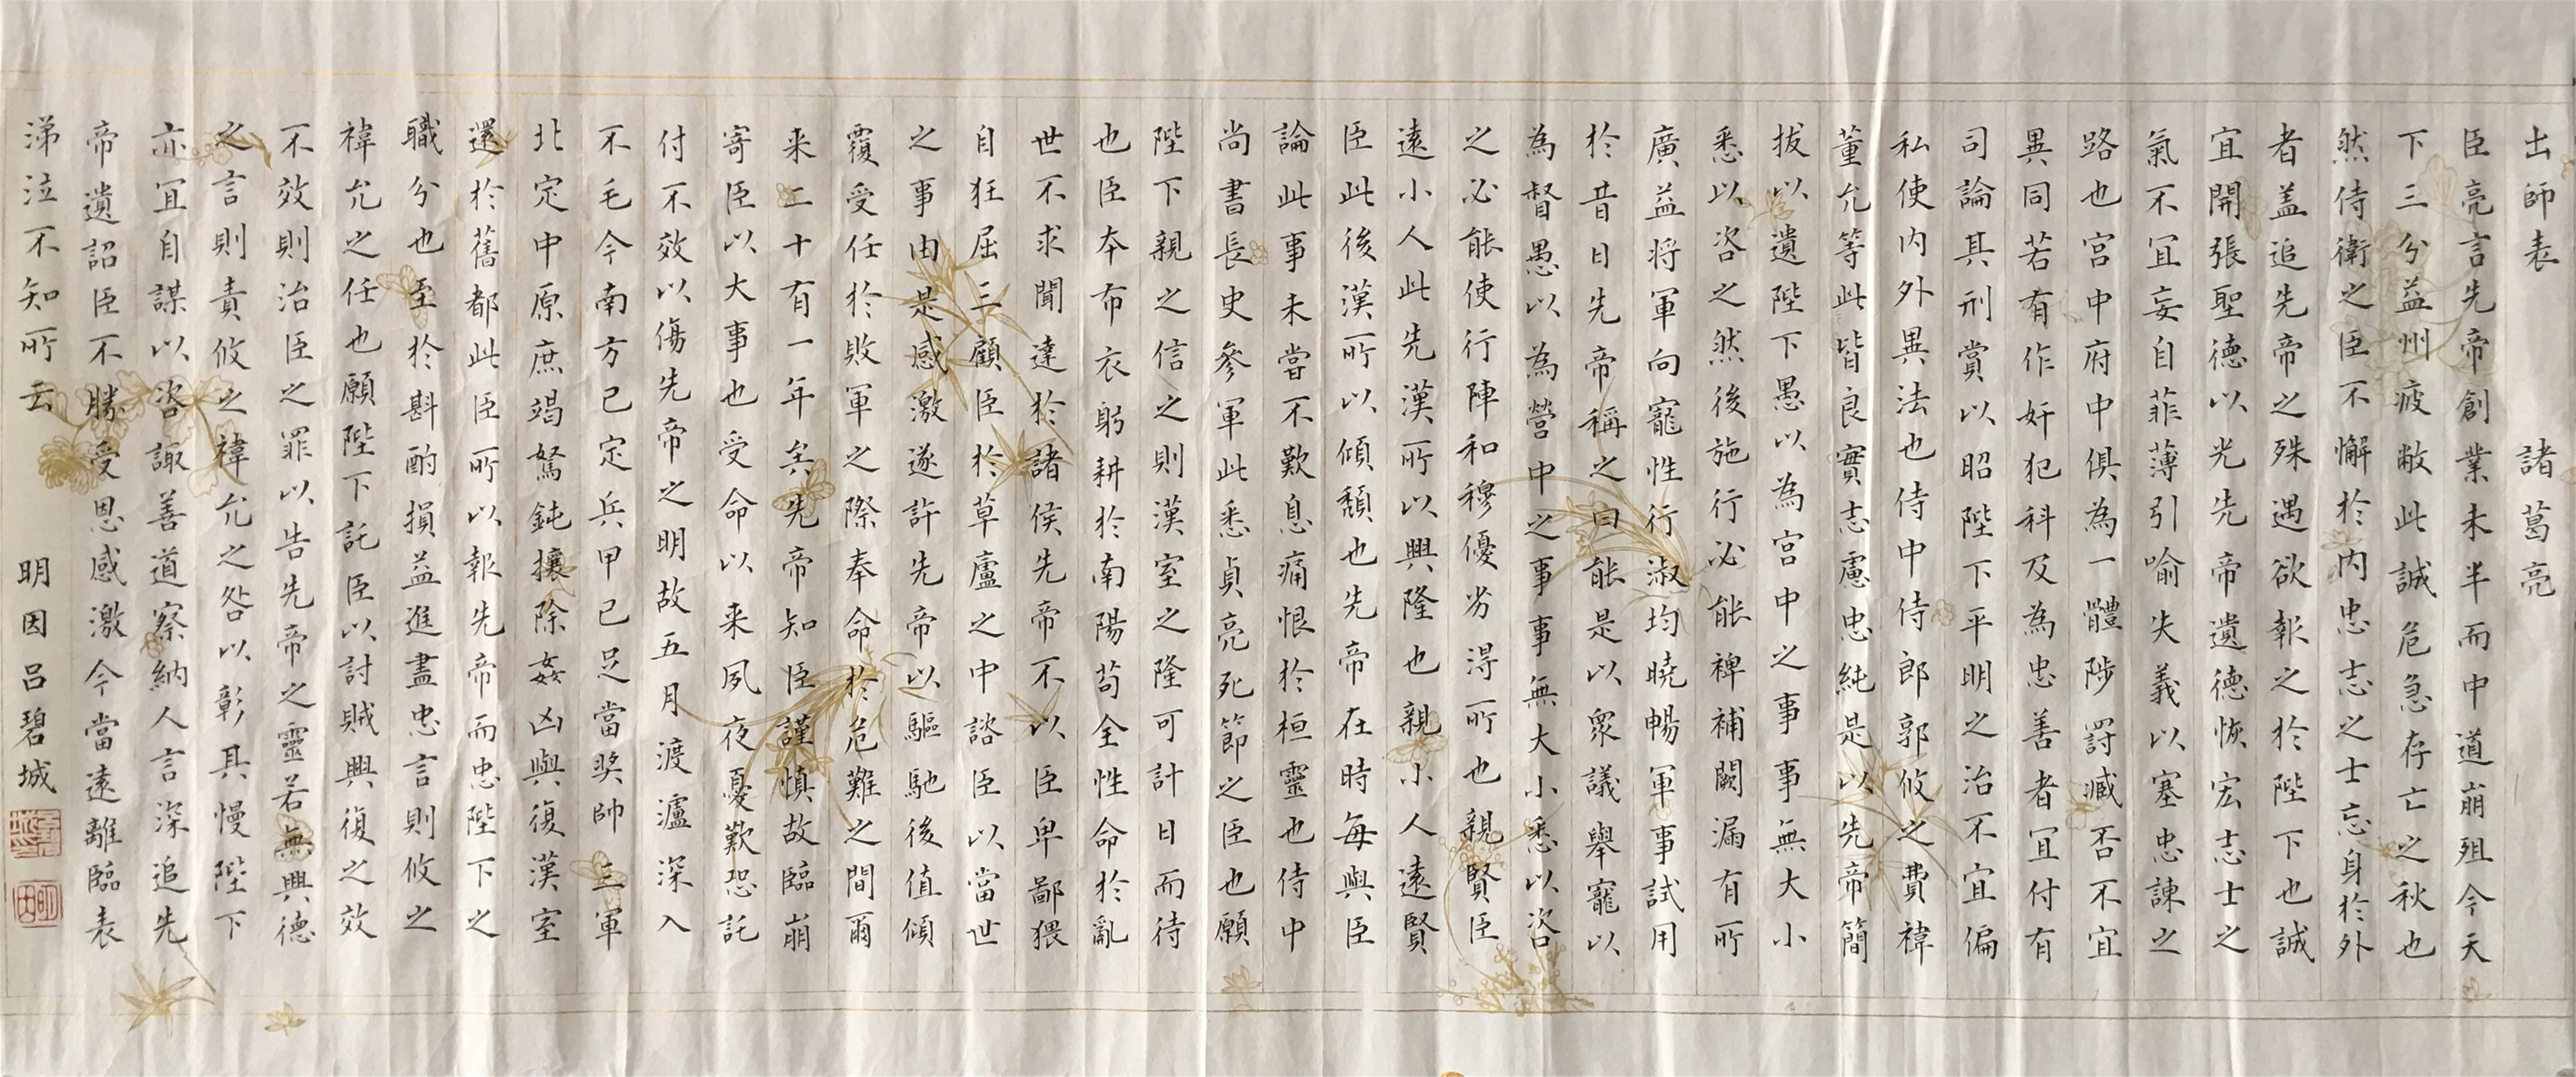 出師表 諸葛亮
臣亮言先帝創業未半而中道崩殂今天
下三分益州疲敝此誠危急存亡之秋也
然侍衛之臣不懈於內忠志之士忘身於外
者盖追先帝之殊遇欲報之於陛下也誠
宜開張聖德以光先帝遺德恢宏志士之
氣不宜妄自菲薄引喻失義以塞忠諫之
路也宫中府中俱為一體陟罸臧否不宜
異同若有作奸犯科及為忠善者宜付有
司論其刑賞以昭陛下平明之治不宜偏
私使內外異法也侍中侍郎郭攸之費禕
董允等此皆良實志慮忠純是以先帝簡
拔以遺陛下愚以為宫中之事事無大小
悉以咨之然後施行必能裨補闕漏有所
廣益將軍向寵性行淑均曉暢軍事試用
於昔日先帝稱之曰能是以衆議舉寵以
為督愚以為營中之事事無大小悉以咨
之必能使行陣和穆優劣得所也親賢臣
遠小人此先漢所以興隆也親小人遠賢
臣此後漢所以傾頹也先帝在時每與臣
論此事未嘗不歎息痛恨於桓靈也侍中
尚書長史參軍此悉貞亮死節之臣也願
陛下親之信之則漢室之隆可計日而待
也臣本布衣躬耕於南陽苟全性命於亂
世不求聞達於諸侯先帝不以臣卑鄙猥
自狂屈三顧臣於草廬之中諮臣以當世
之事由是感激遂許先帝以驅馳後值傾
覆受任於敗軍之際奉命於危難之間爾
来二十有一年矣先帝知臣謹慎故臨崩
寄臣以大事也受命以来夙夜憂歎恐託
付不效以傷先帝之明故五月渡瀘深入
不毛今南方已定兵甲已足當奖帥三軍
北定中原庶竭駑鈍攘除姦凶興復漢室
還於舊都此臣所以報先帝而忠陛下之
職分也至於斟酌損益進盡忠言則攸之
禕允之任也願陛下託臣以討賊興復之效
不效則治臣之罪以告先帝之靈若無興德
之言則責攸之禕允之咎以彰其慢陛下
亦宜自謀以咨諏善道察納人言深追先
帝遺詔臣不勝受恩感激今當遠離臨表
涕泣不知所云 明因吕碧城